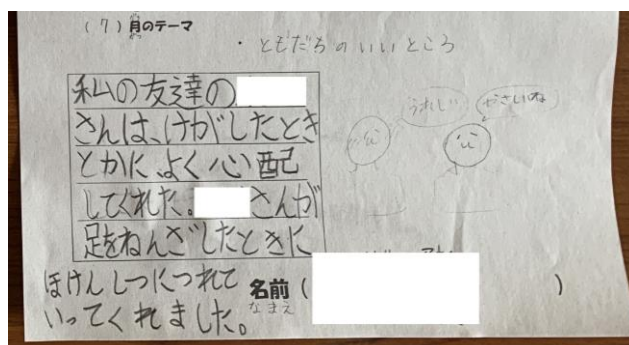 (7)月のテーマ
・ともだちのいいところ
私の友達の
さんは、けがしたとき
とかに、よく心配
してくれた。さんが
足をねんざしたときに
ほけんしつにつれて
いってくれました。
うれしい
やさしいね
名前( )
なまえ